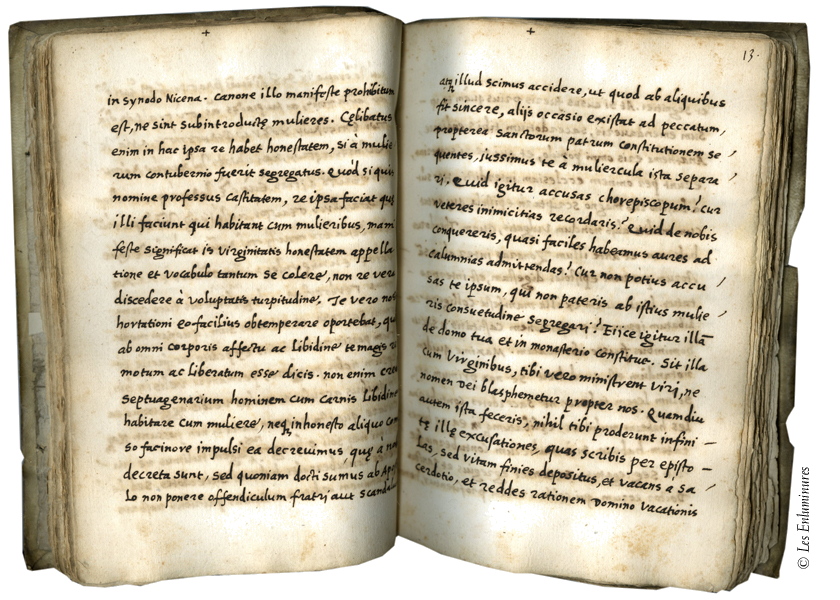 +
in synodo Nicena. canone illo manifeste prohibitum
est, ne sint subintroductę mulieres. Cęlibatus
enim in hac ipsa re habet honestatem, si à mulie
rum contubernio fuerit segregatus. Quòd si quis
nomine professus castitatem, re ipsa faciat quę
illi faciunt qui habitant cum mulieribus, mani
feste significat is virginitatis honestatem appella
tione et vocabulo tantum se colere, non re vera
discedere à voluptatis turpitudine. Te vero nos
hortationi eo facilius obtemperare oportebat, qu
ab omni corporis affectu ac libidine te magis re
motum ac liberatum esse dicis. non enim cre
septuagenarium hominem cum carnis libidine
habitare cum muliere, neq inhonesto aliquo com
so facinore impulsi ea decrevimus, quę à no
decreta sunt, sed quoniam docti sumus ab Apo
lo non ponere offendiculum fratri aut scandal
+
13.
atq illud scimus accidere, ut quod ab aliquibus
fit sincere, alijs occasio existat ad peccatum,
propterea sanctorum patrum constitutionem se
quentes, jussimus te à muliercula ista separa
ri. Quid igitur accusas chorepiscopum? cur
veteres inimicitias recordaris? Quid de nobis
conquereris, quasi faciles habeamus aures ad
calumnias admittendas? Cur non potius accu
sas te ipsum, qui non pateris ab istius mulie
ris consuetudine segregari? Eijce igitur illā
de domo tua et in monasterio constitue. Sit illa
cum Virginibus, tibi vero ministrent viri, ne
nomen Dei blasphemetur propter nos. Quamdiu
autem ista feceris, nihil tibi proderunt infini
tę illę excusationes, quas scribis per episto
las, sed vitam finies depositus, et vacans à sa
cerdotio, et reddes rationem Domino vacationis
© Les Enluminures